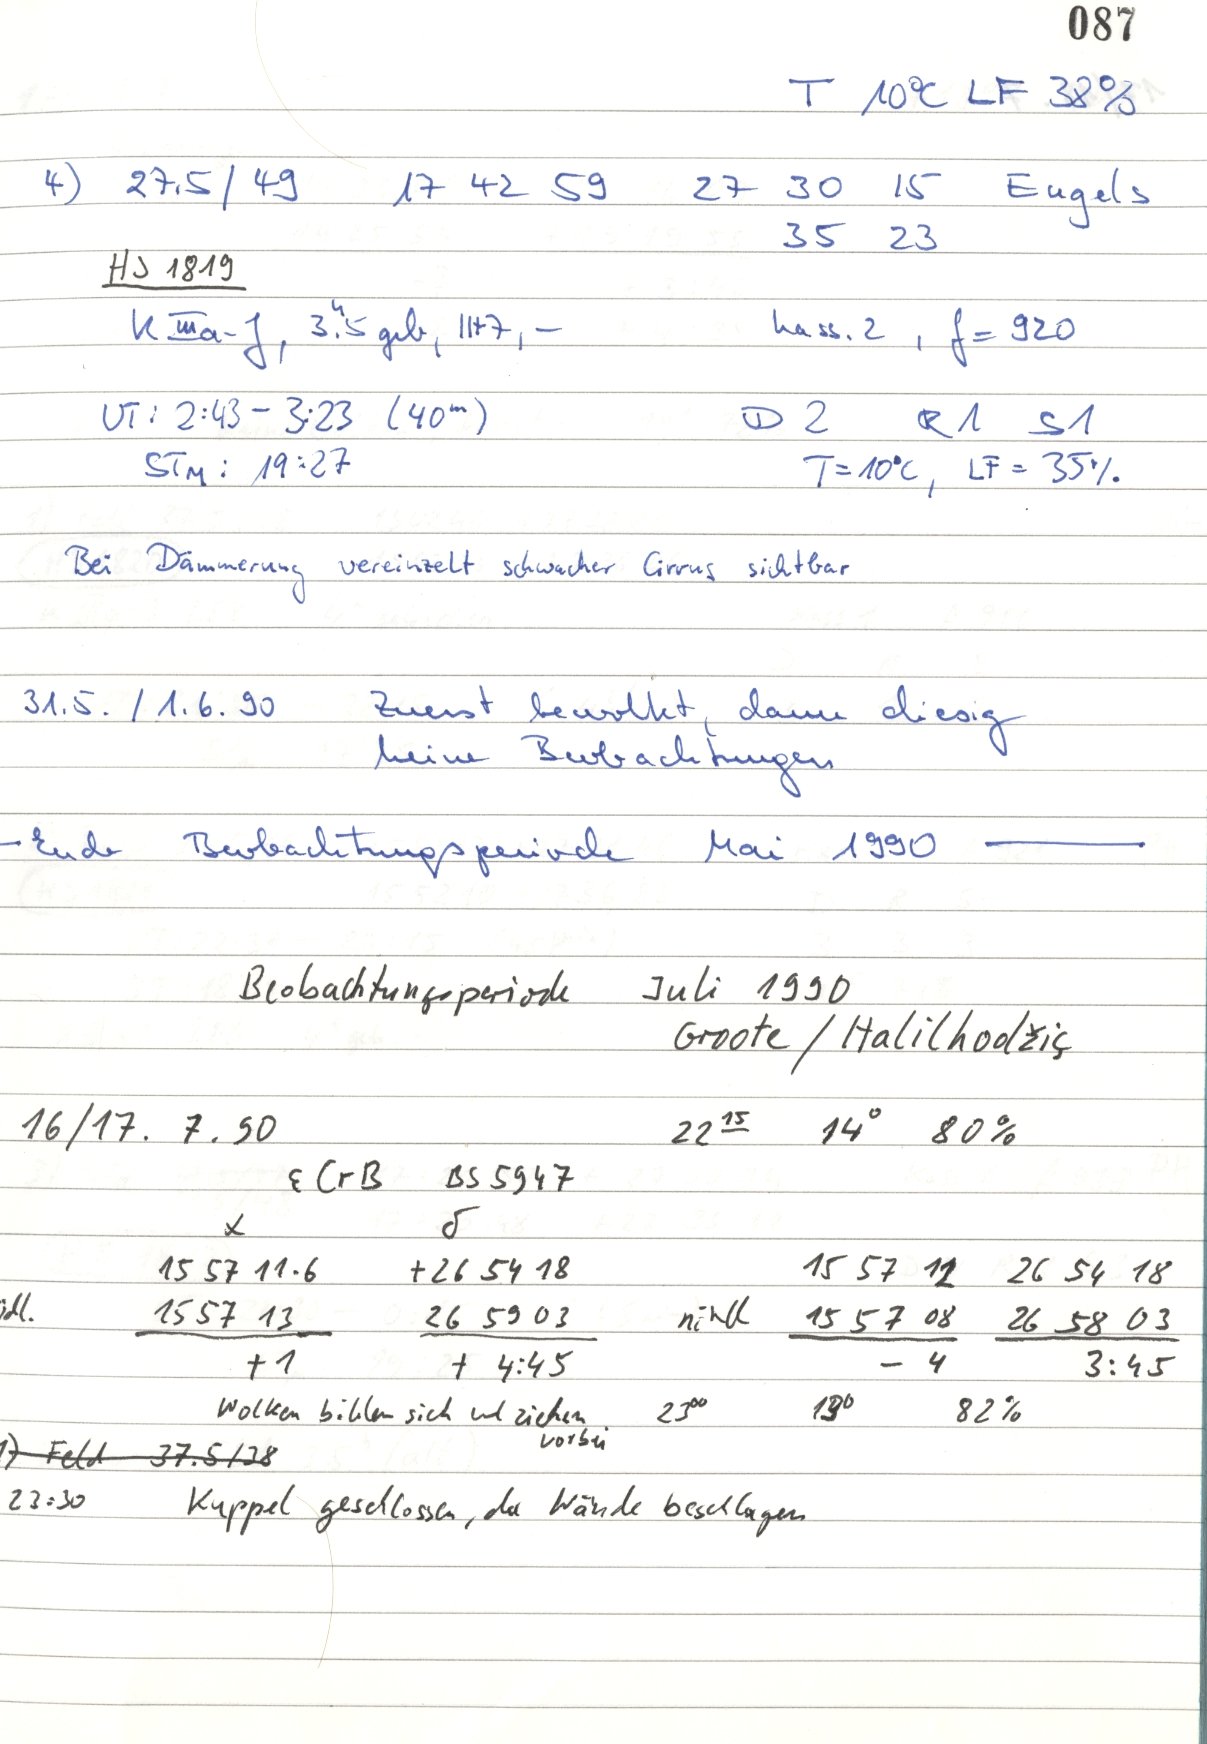 087
T 10°C LF 38%
4) 27.5/49 17 42 59 27 30 15 Engels
35 23
HS 1819
K IIIa-J, 3.5 geb, 117, - Kass. 2, f = 920
UT: 2:43 - 3:23 (40m) D 2 R 1 S 1
STM: 19:27 T = 10°C, LF = 35%.
Bei Dämmerung vereinzelt schwacher Cirrus sichtbar
31.5. / 1.6.90 Zuerst bewölkt, dann diesig
keine Beobachtungen
- Ende Beobachtungsperiode Mai 1990 —
Beobachtungsperiode Juli 1990
Groote / Halilhodžiç
16/17. 7. 90 22 15 14° 80%
ε CrB BS 5947
α δ
15 57 11.6 +26 54 18 15 57 12 26 54 18
15 57 13 26 59 03 15 57 08 26 58 03
+ 1 + 4:45 - 4 3:45
Wolken bilden sich und ziehen vorbei 23 00 82%
1) Feld 37.5/38
23:30 Kuppel geschlossen, da Wände beschlagen